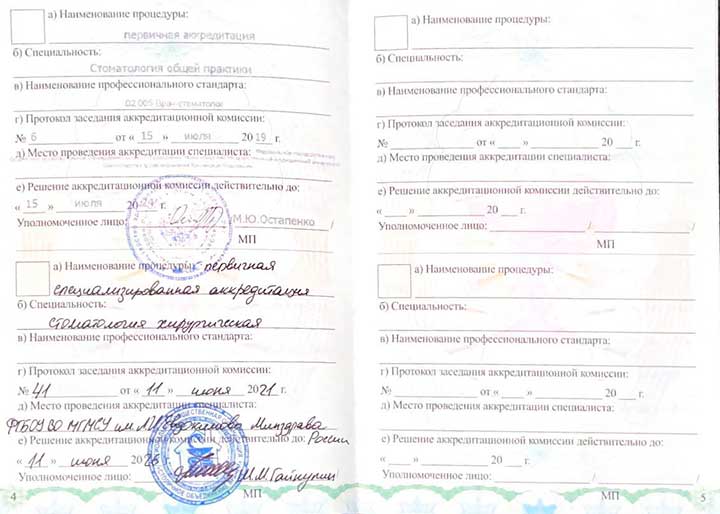 а) Наименование процедуры:
первичная аккредитация
б) Специальность:
Стоматология общей практики
в) Наименование профессионального стандарта:
02.005 Врач-стоматолог
г) Протокол заседания аккредитационной комиссии:
№ 6 от « 15 » июля 20 19 г.
д) Место проведения аккредитации специалиста:
е) Решение аккредитационной комиссии действительно до:
« 15 » июля 20 24 г.
Уполномоченное лицо: /М.Ю.Остапенко /
МП
а) Наименование процедуры: первичная
специализированная аккредитация
б) Специальность:
стоматология хирургическая
в) Наименование профессионального стандарта:
г) Протокол заседания аккредитационной комиссии:
№ 41 от « 11 » июня 20 21 г.
д) Место проведения аккредитации специалиста:
ФГБОУ ВО МГМСУ им. А.И. Евдокимова Минздрава
е) Решение аккредитационной комиссии действительно до: России
« 11 » июня 20 26
Уполномоченное лицо:
МП
4
а) Наименование процедуры:
б) Специальность:
в) Наименование профессионального стандарта:
г) Протокол заседания аккредитационной комиссии:
№ от « » 20 г.
д) Место проведения аккредитации специалиста:
е) Решение аккредитационной комиссии действительно до:
« » 20 г.
Уполномоченное лицо: / /
МП
а) Наименование процедуры:
б) Специальность:
в) Наименование профессионального стандарта:
г) Протокол заседания аккредитационной комиссии:
№ от « » 20 г.
д) Место проведения аккредитации специалиста:
е) Решение аккредитационной комиссии действительно до:
« » 20 г.
Уполномоченное лицо: / /
МП
5